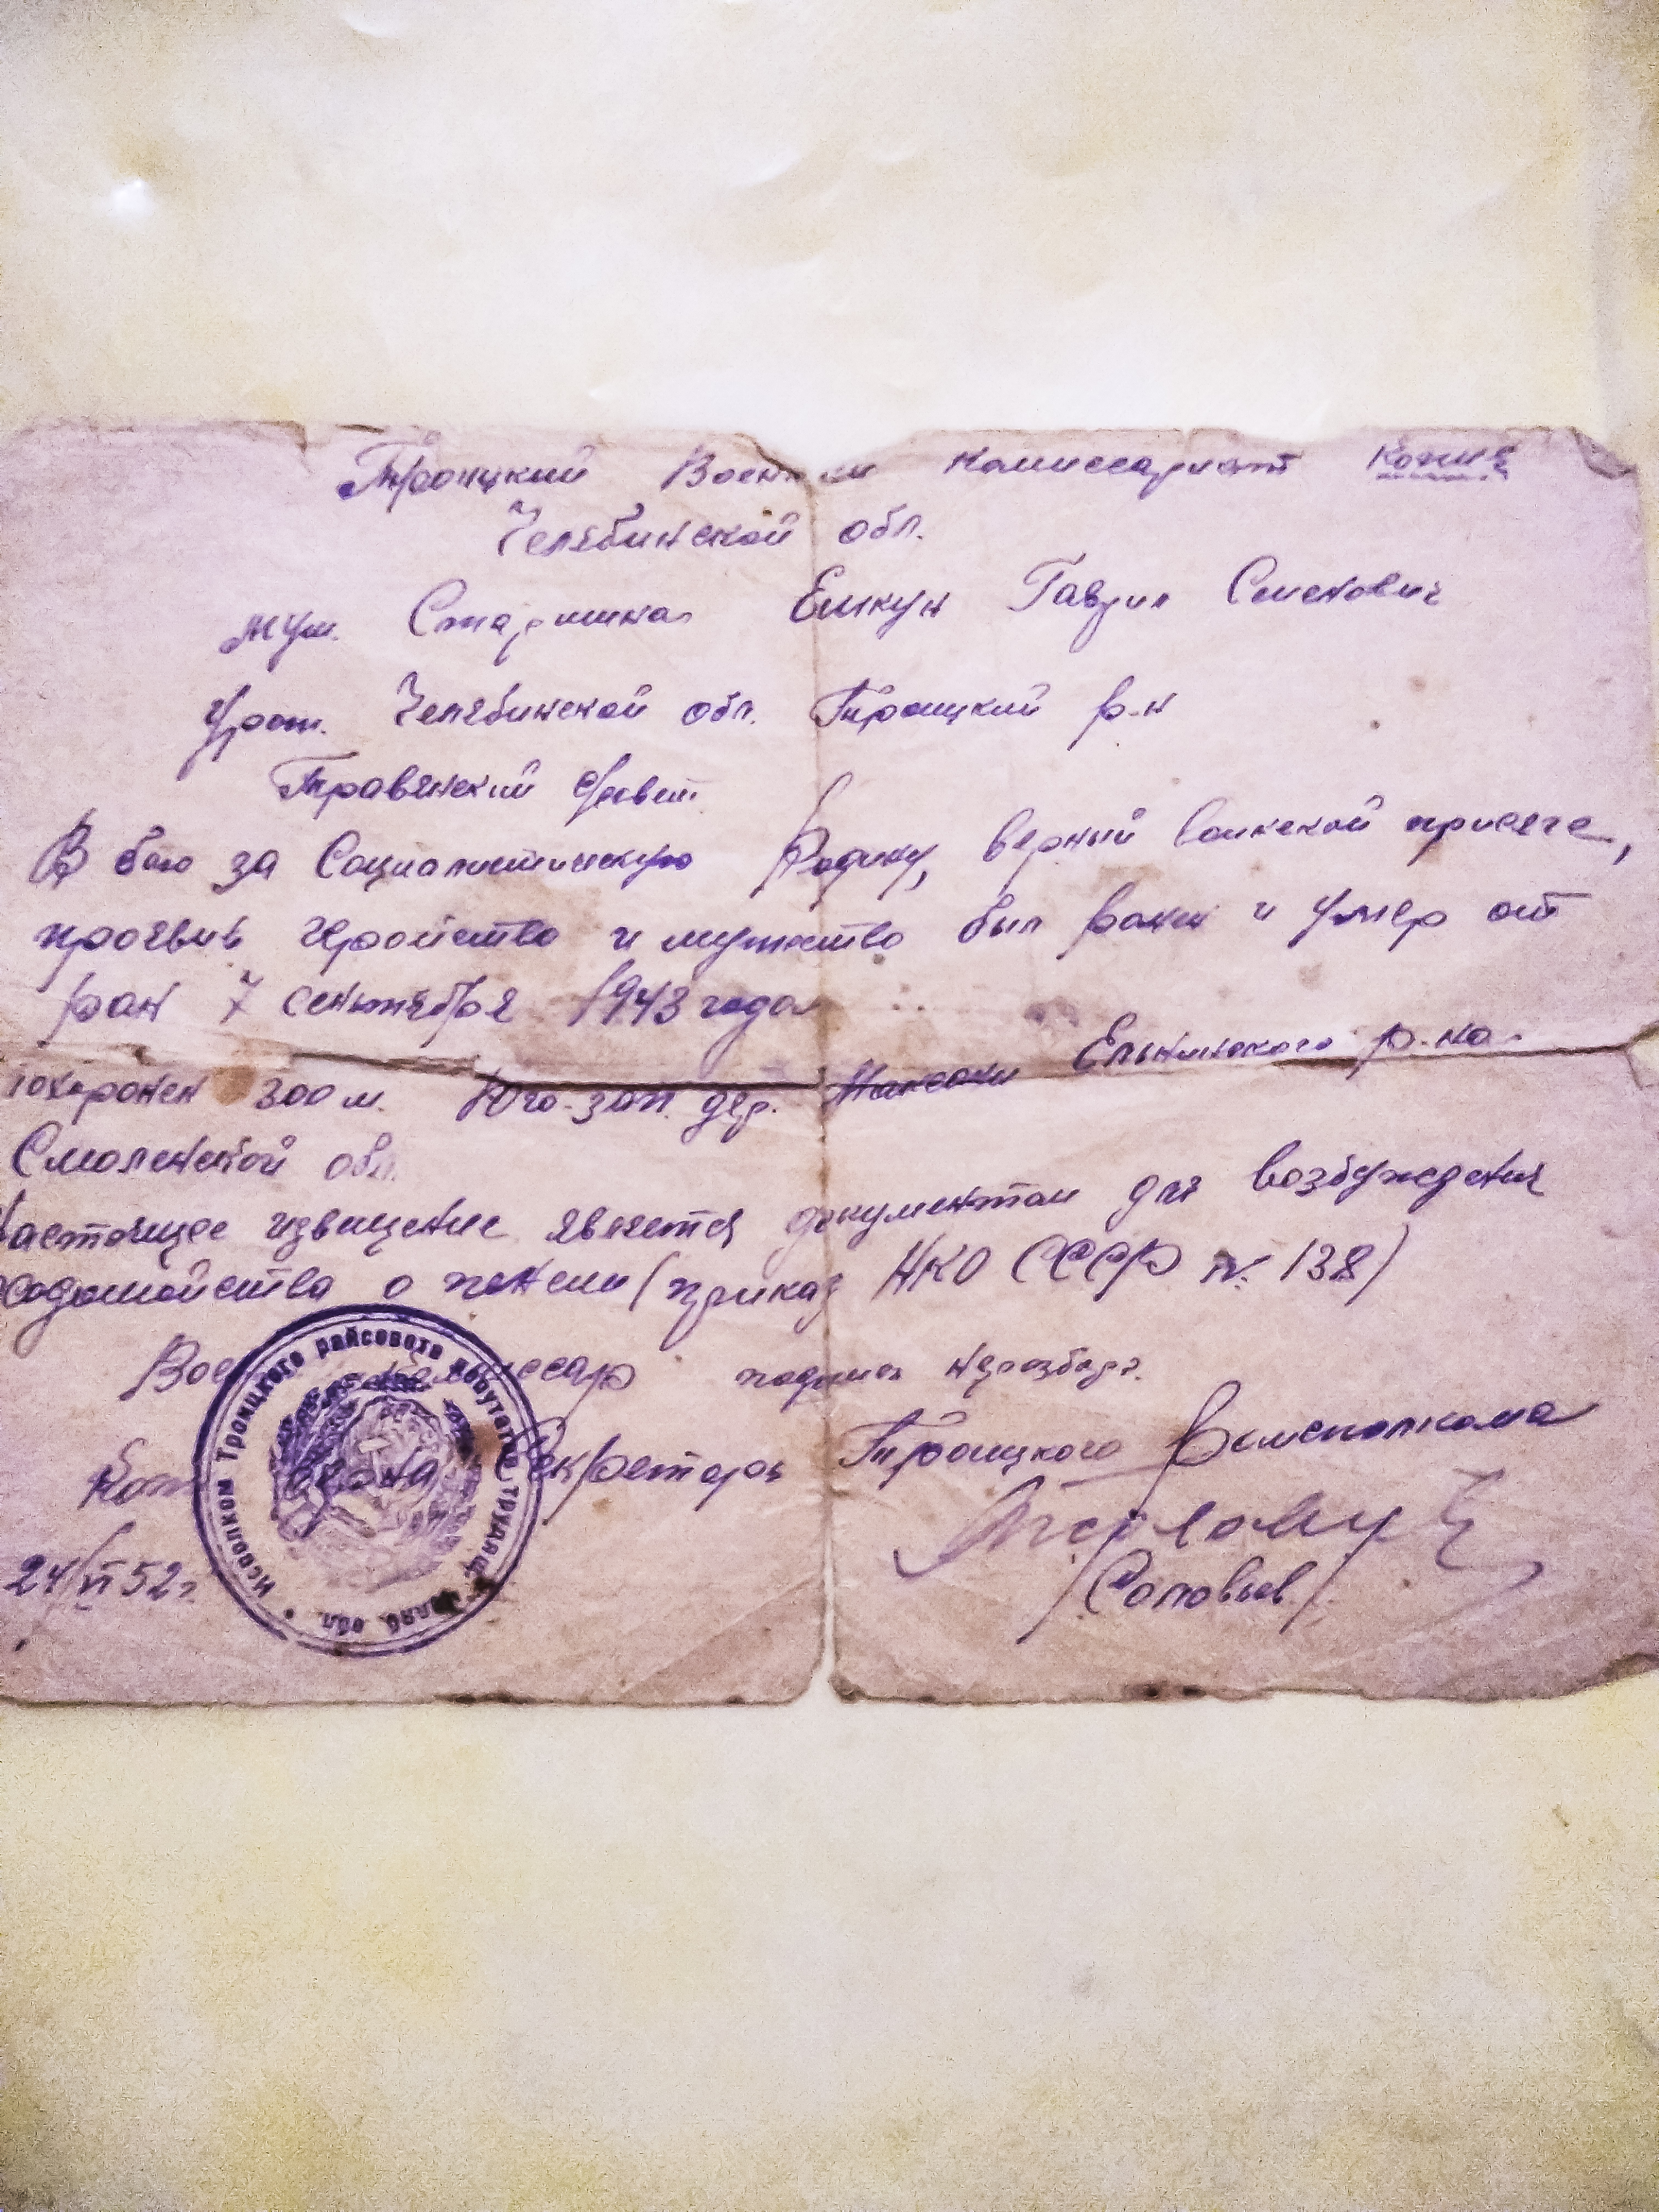 Троицкий Военный комиссариат Копия
Челябинской обл.
муж. Старшина Еликун Гаврил Семенович
Урож. Челябинской обл. Троицкий р-н
Травянский Совет
В бою за Социалистическую Родину, верный воинской присяге,
проявив геройство и мужество был ранен и умер от
ран 7 сентября 1943 года
похоронен 300 м. Юго-зап. дер. Ельнинского р-на
Смоленской обл.
Настоящее извещение является документом для возбуждения
ходатайства о пенсии (приказ НКО СССР N. 138)
Военный комиссар подпись неразбор.
Копия верна Секретарь Троицкого Райисполкома
/Соловьев/
24/VI 52 г.
Исполком Троицкого райсовета депутатов трудящ. Челяб. обл.